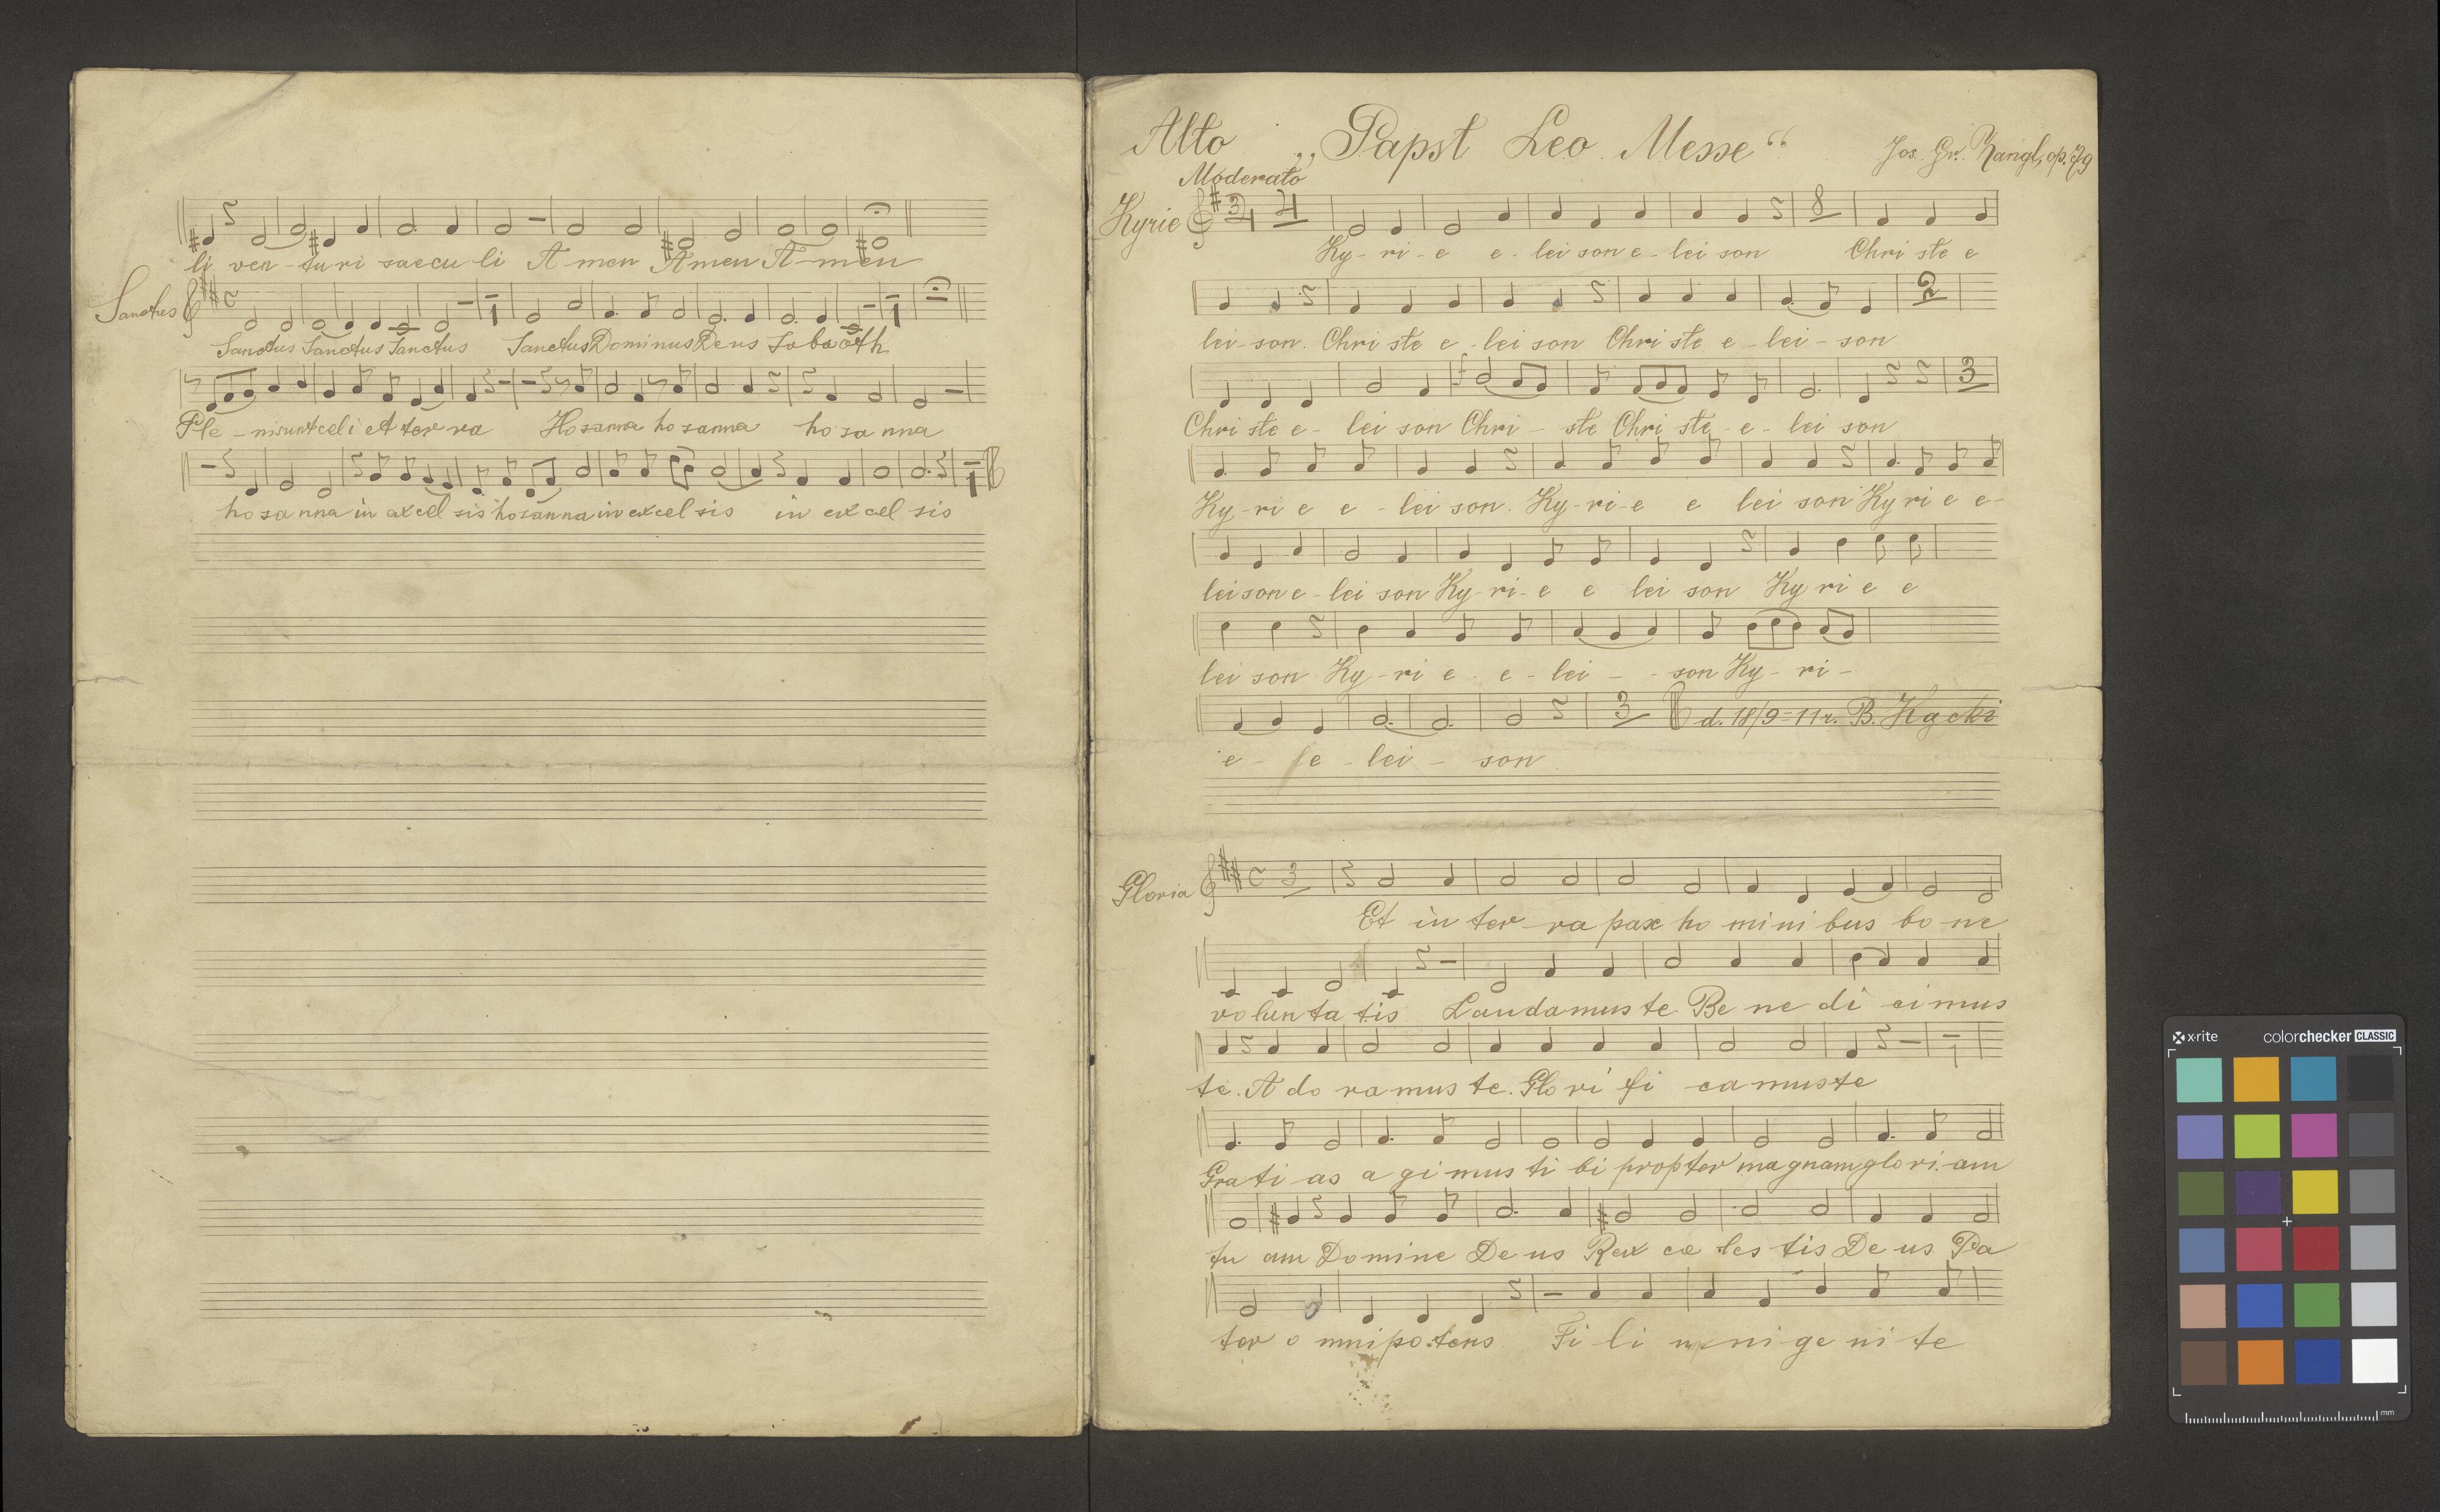 li ven-turi saecu li A-men Amen A-men
Sanctus
Sanctus Sanctus Sanctus Sanctus Dominus Deus Sabaoth
Ple-ni sunt celi et terra Hosanna hosanna hosanna
hosanna in excelsis hosanna in excelsis in excelsis
Alto „Papst Leo Messe“ Jos. Gr. Zangl, op. 79
Moderato
Kyrie 3/4 4 8
Ky-ri-e e-leison e-leison Christe e
2
lei-son. Christe e-leison Christe e-lei-son
3
Christe e-leison Chri-ste Christe-e-leison
Ky-rie e-leison. Ky-ri-e e leison Kyrie e-
leison e-leison Ky-ri-e e leison Kyrie e
leison Ky-rie e-lei--son Ky-ri-
3 d. 18/9=11r. B. Kącki
e-e-lei-son
Gloria C 3
Et in ter-ra pax hominibus bo-ne
voluntatis Laudamus te. Benedicimus
te. Adoramus te. Glorificamus te
Gratias agimus tibi propter magnam gloriam
tuam Domine Deus Rex cælestis Deus Pa
ter omnipotens Fili unigenite
x·rite colorchecker CLASSIC
mm